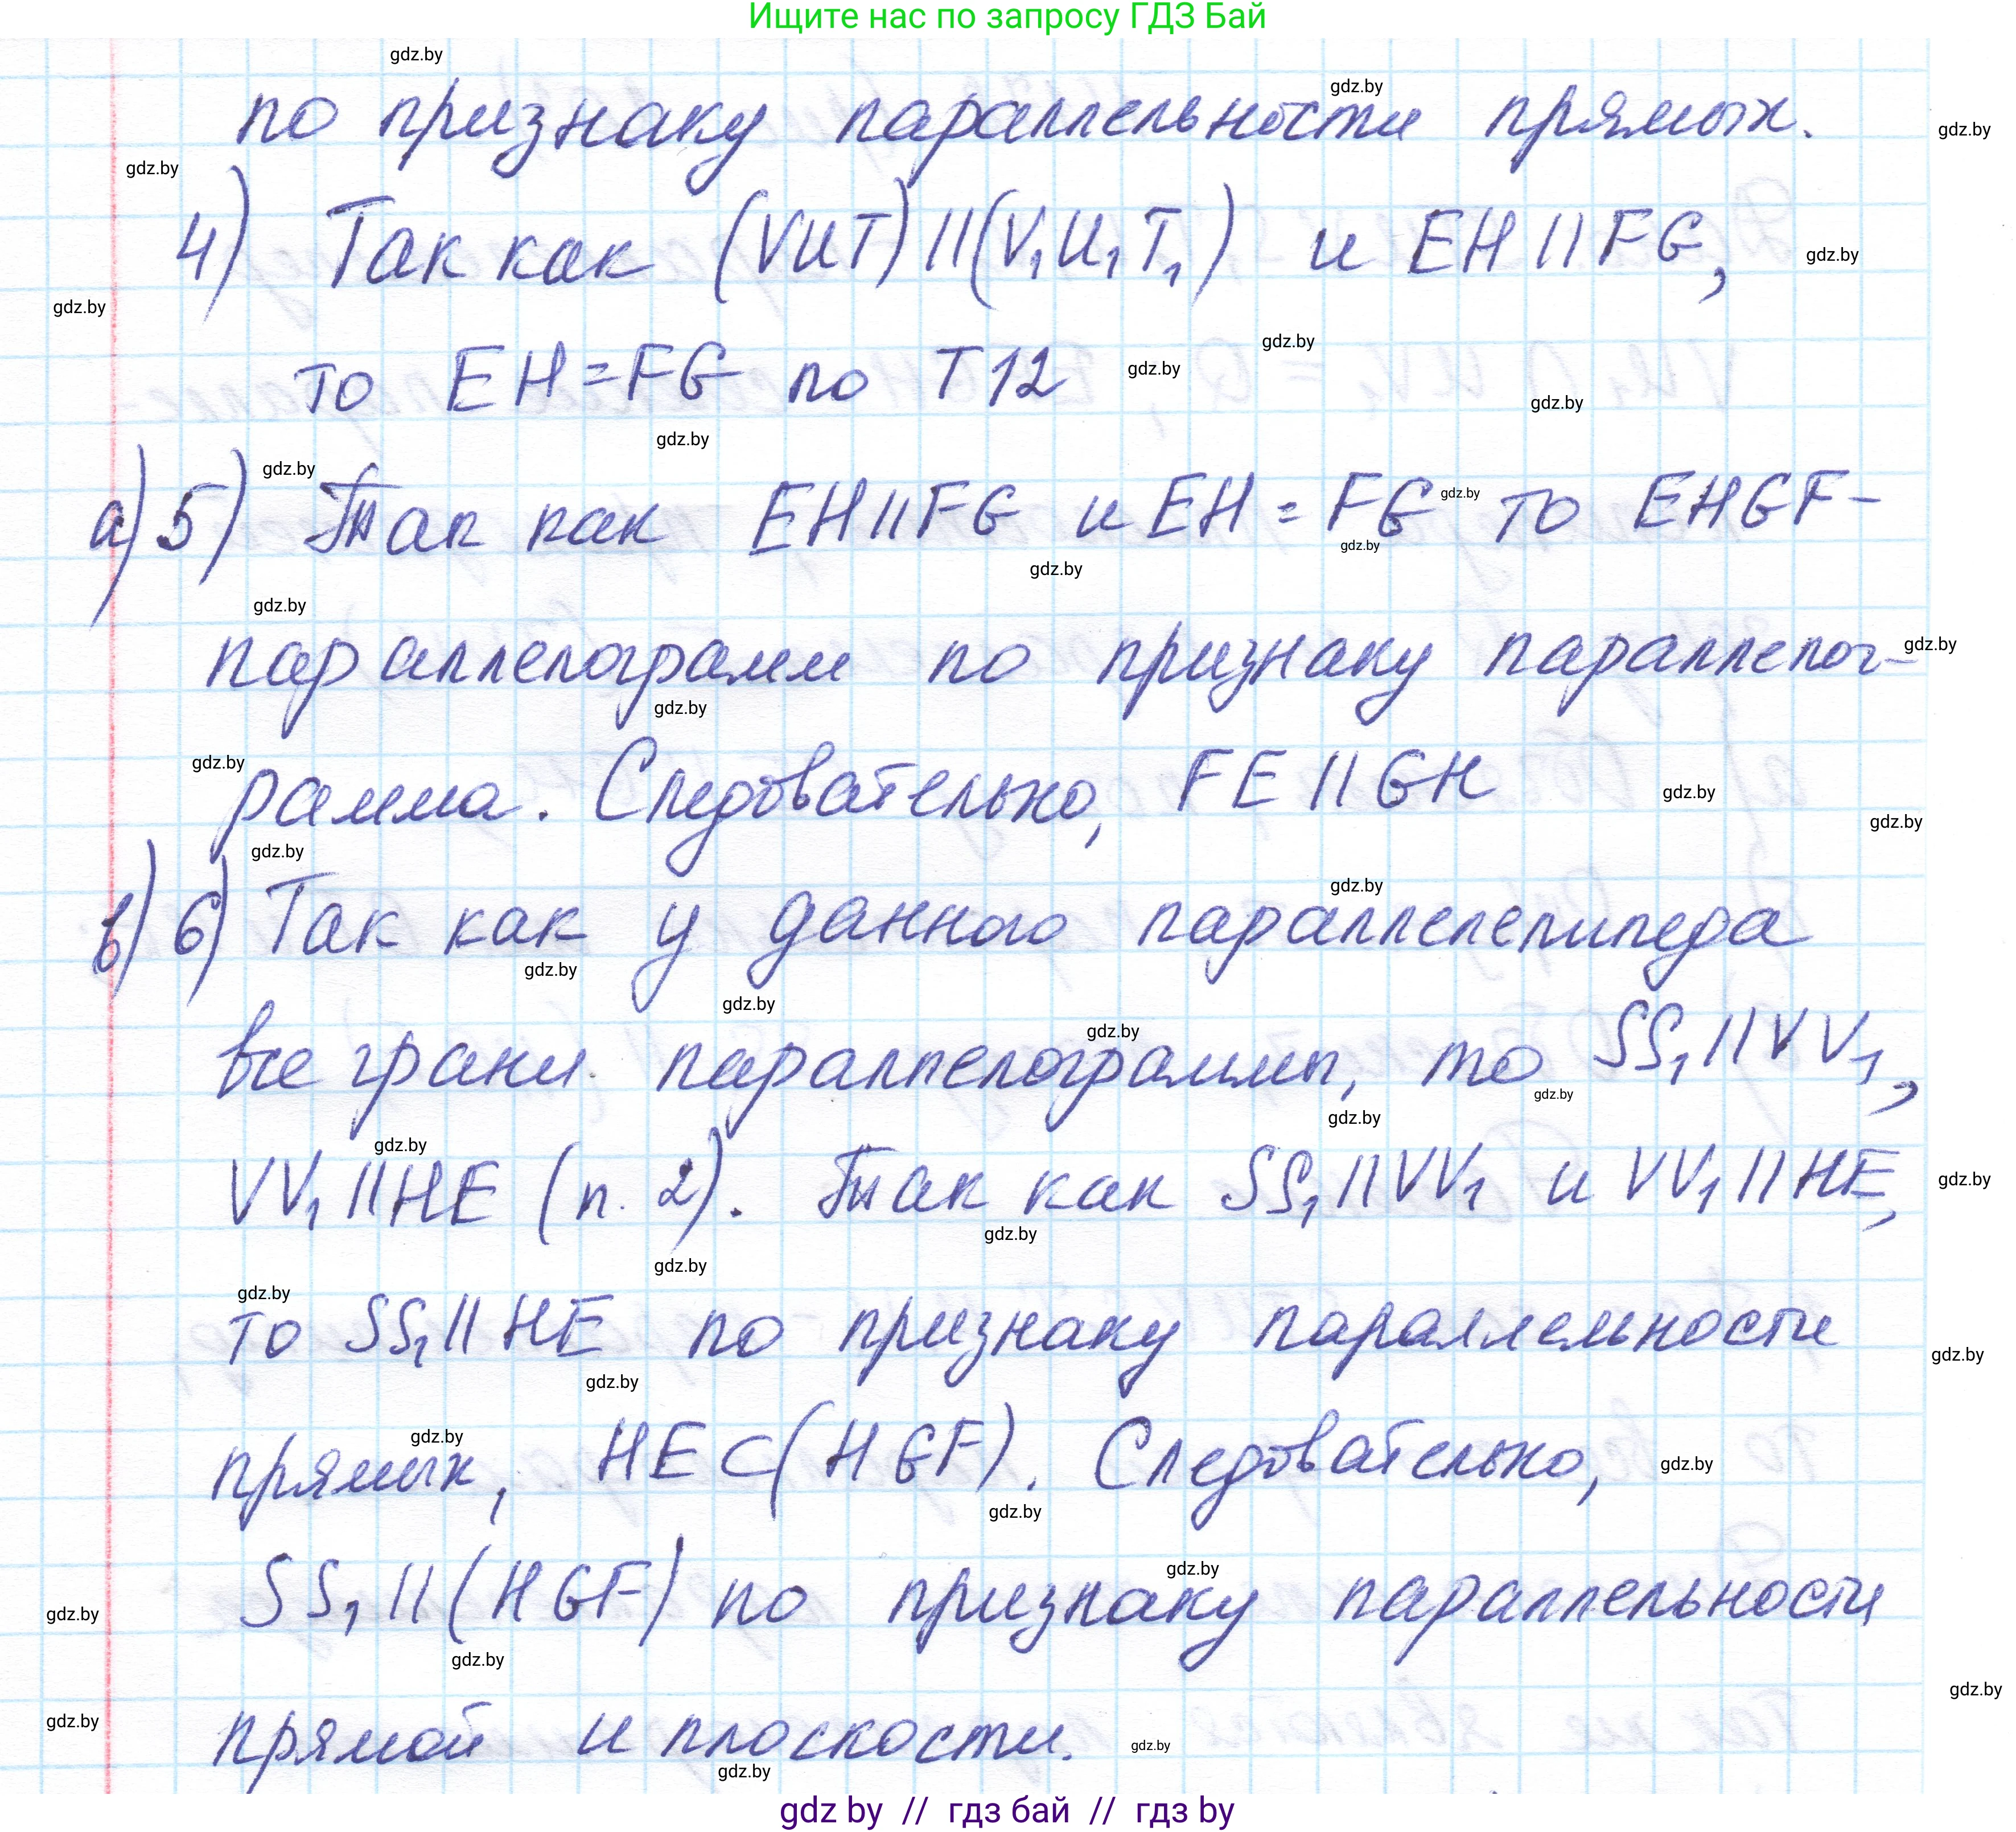 Ищите нас по запросу ГДЗ Бай
по признаку параллельности прямых.
4) Так как (VUT)||(V₁U₁T₁) и EH||FG,
то EH=FG по T12
а) 5) Так как EH||FG и EH=FG то EHGF-
параллелограмм по признаку параллелог-
рамма. Следовательно, FE||GH
в) 6) Так как у данного параллелепипеда
все грани параллелограммы, то SS₁||VV₁,
VV₁||HE (п. 2). Так как SS₁||VV₁ и VV₁||HE,
то SS₁||HE по признаку параллельности
прямых, HE⊂(HGF). Следовательно,
SS₁||(HGF) по признаку параллельности
прямой и плоскости.
gdz by // гдз бай // гдз by